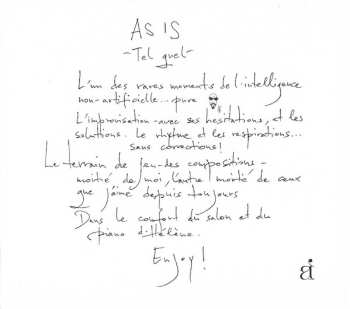 AS IS
- Tel quel -
L'un des rares moments de l'intelligence
non-artificielle... pure
L'improvisation - avec ses hesitations, et les
solutions. Le rhytme et les respirations...
sans corrections!
Le terrain de jeu - des compositions -
moitié de moi, l'autre moitié de ceux
que j'aime depuis toujours
Dans le confort du salon et du
piano d'Hélène.
Enjoy!